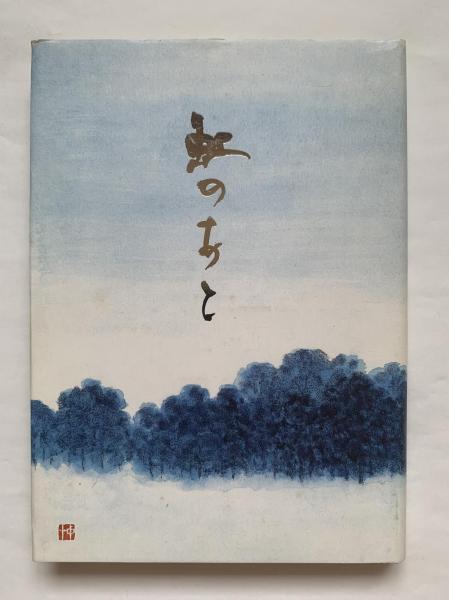 虹のあと